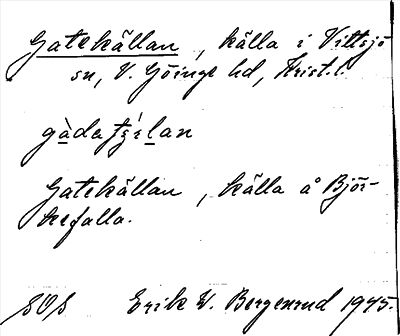 Gatekällan, källa i Vittsjö
sn, V. Göinge hd, Krist. l.
Gatekällan, källa å Björ-
kefalla.
SOS Erik W. Bergenrud 1945.